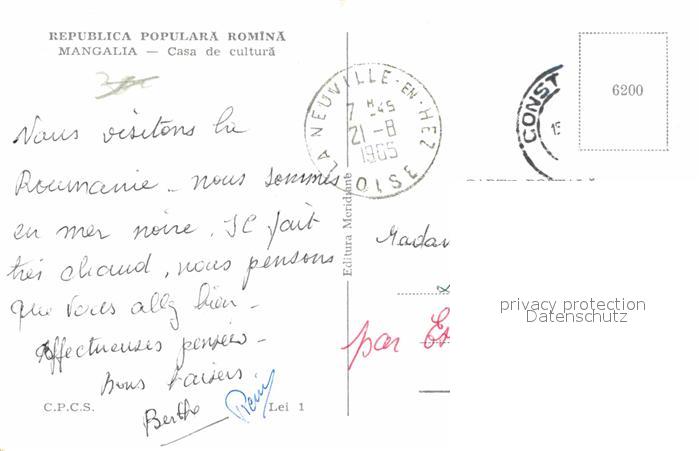 REPUBLICA POPULARĂ ROMÎNĂ
MANGALIA — Casa de cultură
Nous visitons la
Roumanie - nous sommes
en mer noire. Il fait
très chaud, nous pensons
que vous allez bien -
Affectueuses pensées -
bons baisers.
Berthe Rémy
C.P.C.S. Lei 1
Editura Meridiane
LA NEUVILLE-EN-HEZ
7 H 45
21-8
1965
OISE
CONST
15
6200
Madam
par Es
privacy protection
Datenschutz